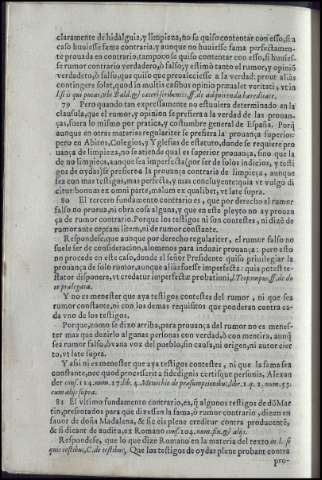 claramente de hidalguia, y limpieza, no se quiso contentar con esso, si a
caso huuiesse fama contraria, y aunque no huuiesse fama perfectamen-
te prouada en contrario, tampoco se quiso contentar con esso, si huuies-
se rumor contrario verdadero, ò falso; y estimò tanto el rumor, y opiniõ
verdadero, ò falso, que quiso que preualeciesse a la verdad: prout aliàs
contingere solet, quod in multis casibus opinio præualet veritati, vt in
79 Pero quando tan expressamente no estuuiera determinado en la
clausula, que el rumor, y opinion se prefiera a la verdad de las prouan-
ças, fuera lo mismo por pratica, y costumbre general de España. Porq̃
aunque en otras materias regulariter se prefiera la prouança superior:
pero en Abitos, Colegios, y Yglesias de estatuto, donde se requiere pro
uança de limpieza, no se atiende qual es superior prouança, sino que la
de no limpieza, aunque sea imperfecta (por ser de solos indicios, y testi
gos de oydas) se prefiere a la prouança contraria de limpieza, aunque
sea con mas testigos, mas perfecta, y mas concluyente: quia vt vulgo di
citur bonum ex omni parte, malum ex qualibet, vt late supra.
80 El tercero fundamento contrario es, que por derecho al rumor
falso no prueua, ni obra cosa alguna, y que en este pleyto no ay prouan
ça de rumor contrario. Porque los testigos ni son contestes, ni dizẽ de
rumor ante ceptam litem, ni de rumor constante.
Respondese, que aunque por derecho regulariter, el rumor falso no
suele ser de consideracion, alomenos para induzir prouança: pero esto
no procede en este caso, donde el señor Presidente quiso priuilegiar la
prouança de solo rumor, aunque aliàs fuesse imperfecta: quia potest te-
stator disponere, vt credatur imperfectæ probationi,
Y no es menester que aya testigos contestes del rumor, ni que sea
rumor constante, ni con los demas requisitos que ponderan contra ca-
da vno de los testigos.
Porque, como se dixo arriba, para prouança del rumor no es menes-
ter mas que dezirlo algunas personas con verdad, ò con mentira, aunq̃
sea rumor falso, ò vana voz del pueblo, sin causa, ni origen, ni autor cier
to, vt late supra.
Y assi ni es menester que aya testigos contestes, ni que la fama sea
constante, nec quod processerit a fide dignis certisque personis, Alexan
der
cum alijs supra.
81 El vltimo fundamento contrario es, que algunos testigos de dõ Mar
tin, presentados para que dixessen la fama, ò rumor contrario, dizen en
fauor de doña Madalena, &amp; sic eis plene creditur contra producentẽ,
Respondese, que lo que dize Romano en la materia del texto in l. si
quis testibus, C. de testibus, Que los testigos de oydas plene probant contra
pro-